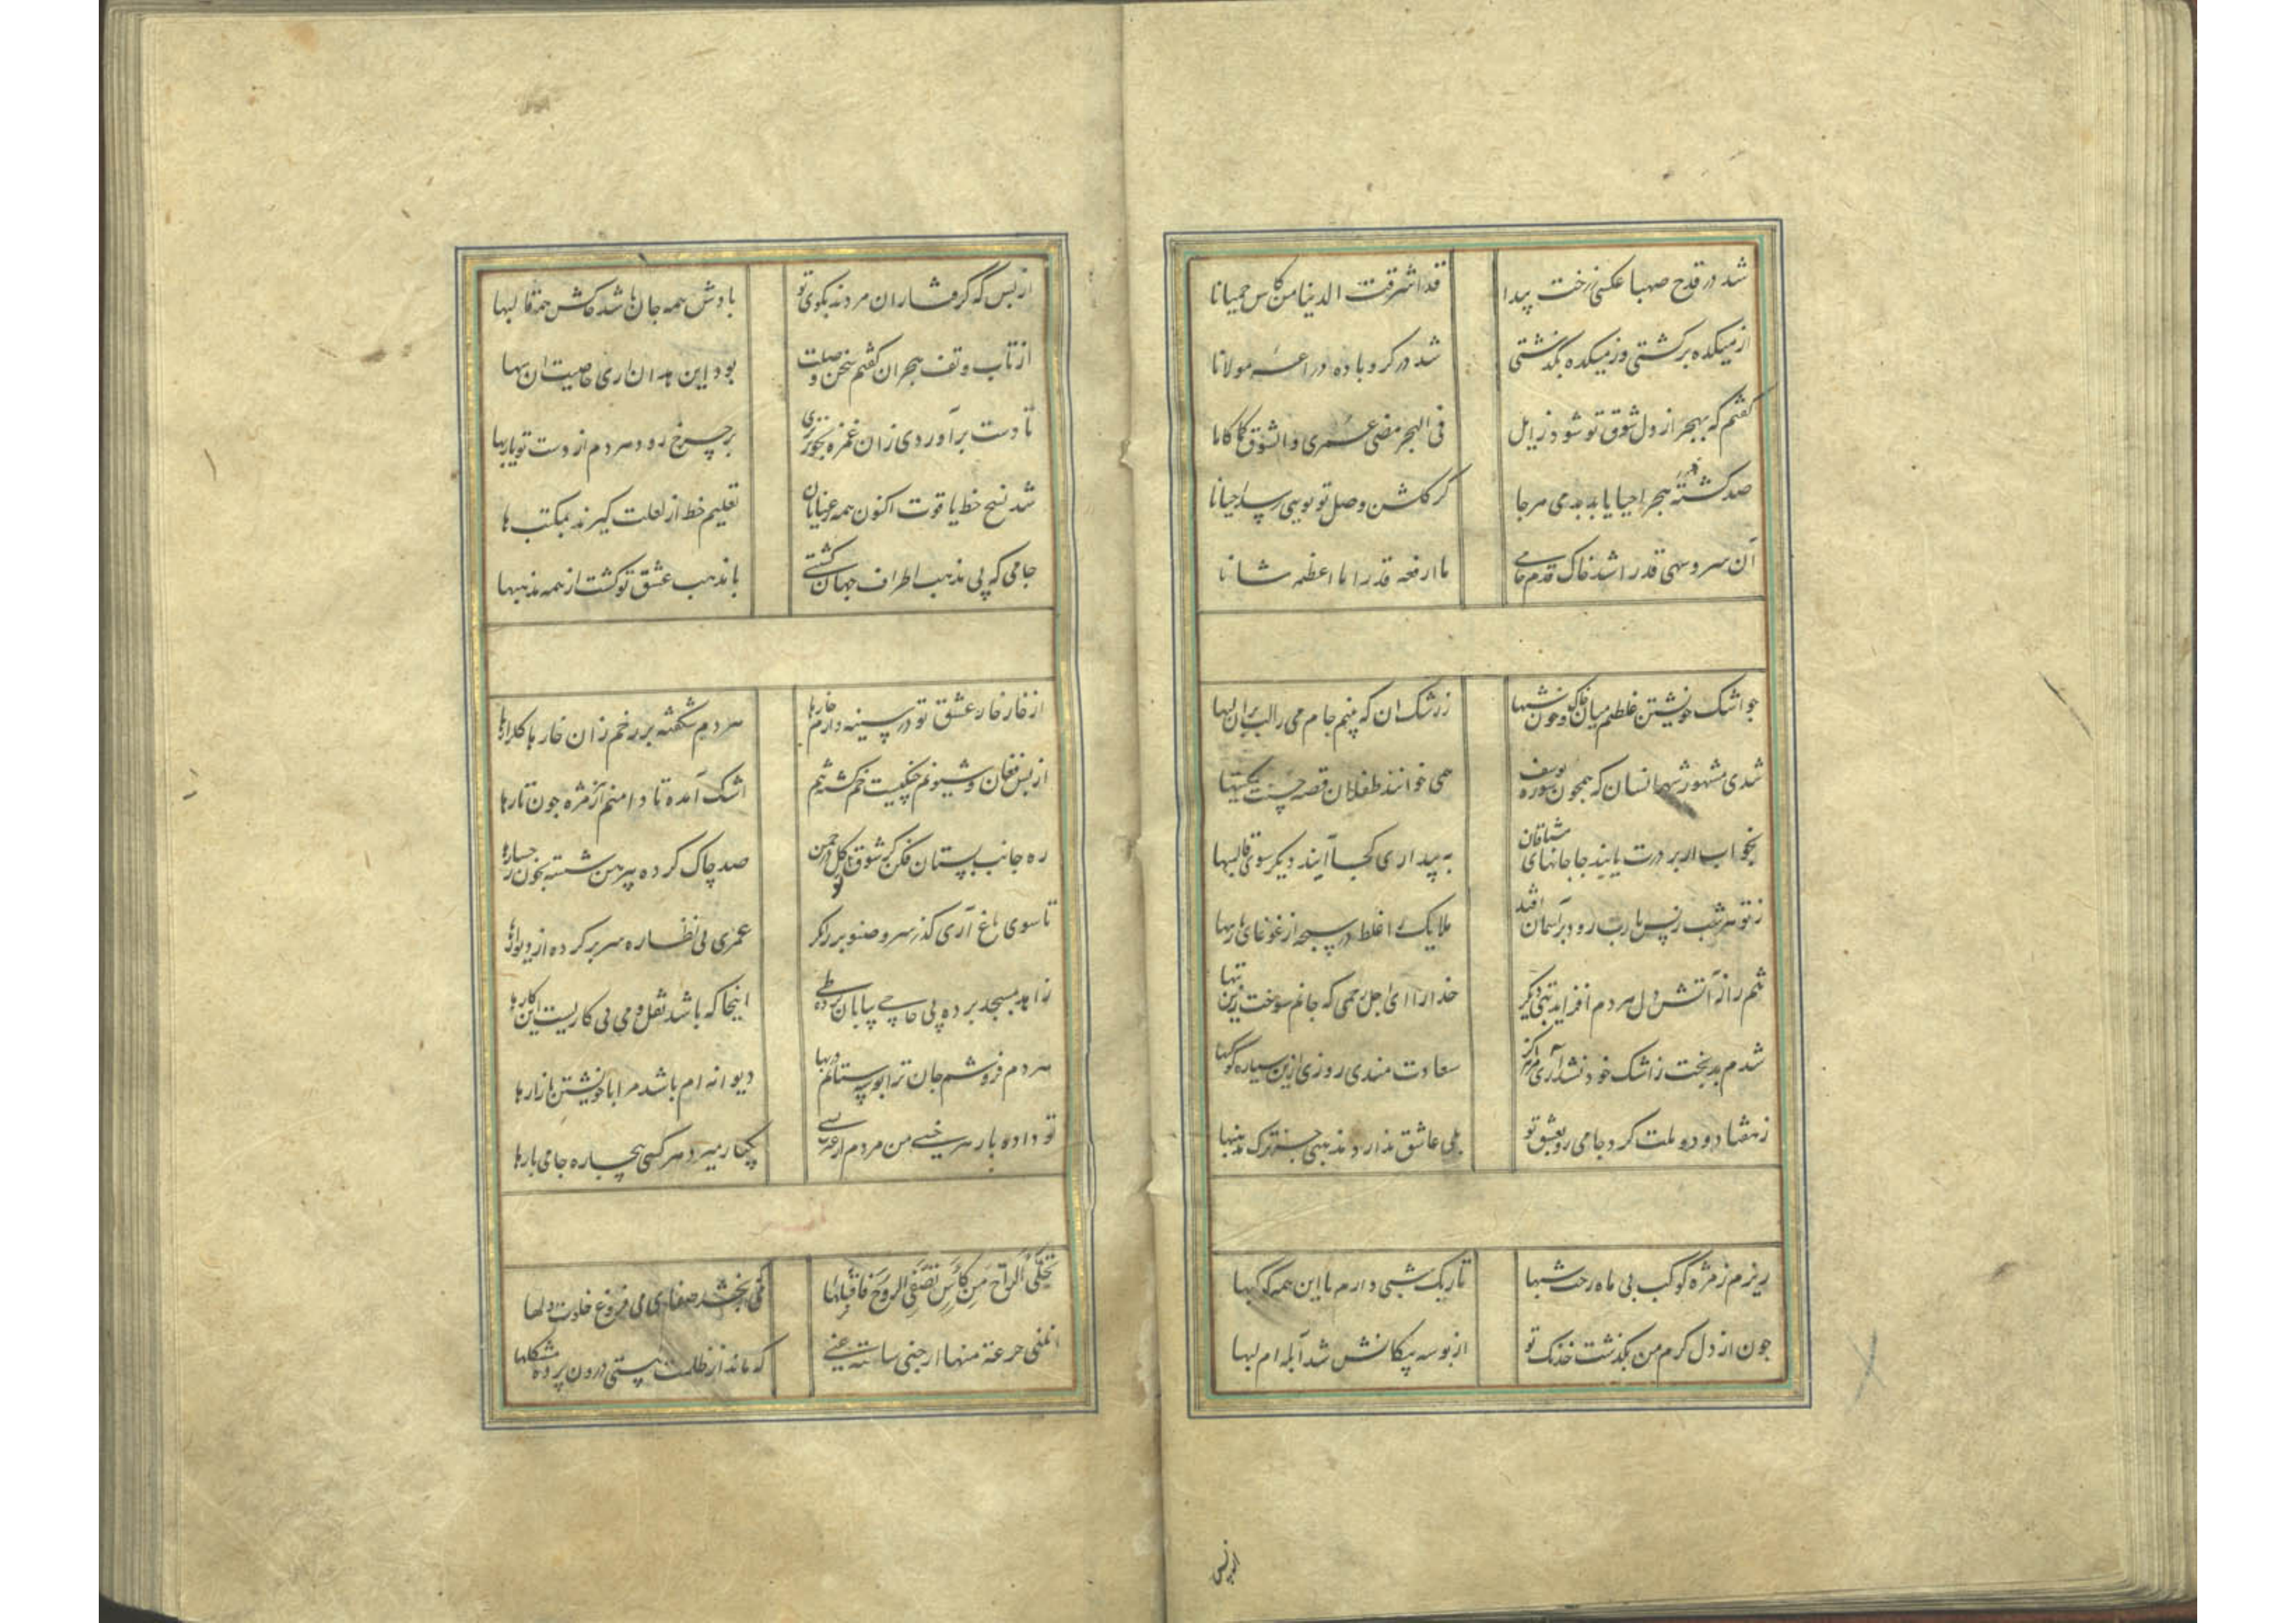 شد در قدح صهبا عکسی ز رخت پیدا قد اشرقت الدنیا من کاس حمیانا
از میکده برکشتی وز میکده بکذشتی شد در کرو باده دراعه مولانا
کفتم که بهجر از دل شوق تو شود زایل فی الهجر مضی عمری والشوق کما کانا
صد کشته هجر احیا یابد بدمی مرجا کر کلشن وصل تو بویی رسد احیانا
آن سرو سهی قد را شد خاک قدم جامی ما ارفعه قدرا ما اعظمه شانا
جو اشک خویشتن غلطم میان خاک و خون شبها ز رشک ان که بینم جام می را لب بران لبها
شدی مشهور شهر انسان که همجون سوره یوسف همی خوانند طفلان قصه حسنت بمکتبها
بخواب ار بر درت یابند جا جانهای مشتاقان به بیداری کجا آیند دیکر سوی قالبها
ز تو هر شب ز بس یارب رود بر آسمان افتد ملایک را غلط در سبحه از غوغای یاربها
تنم را ز آتش دل هر دم افزاید تبی دیکر خدا را ای اجل رحمی که جانم سوخت زین تبها
شدم بدبخت ز اشک خود نشد آری مرا هرکز سعادت مندی روزی ازین سیاره کوکبها
ز هفتاد و دو ملت کرد جامی رو بعشق تو بلی عاشق ندارد مذهبی جز ترک مذهبها
ریزم ز مژه کوکب بی ماه رخت شبها تاریک شبی دارم با این همه کوکبها
جون از دل کرم من بکذشت خدنک تو از بوسه پیکانش شد آبله ام لبها
از بس که کرفتاران مردند بکوی تو بادش همه جان باشد خاکش همه قالبها
از تاب و تف هجران کفتم سخن وصلت بود این هذیان اری خاصیت ان تبها
تا دست برآوردی زان غمزه بخونریزی بر چرخ رود هر دم از دست تو یاربها
شد نسخ خط یاقوت اکنون همه رعنایان تعلیم خط از لعلت کیرند بمکتب ها
جامی که پی مذهب اطراف جهان کشتی با مذهب عشق تو کشت از همه مذهبها
از خار خار عشق تو در سینه دارم خارها هر دم شکفته بر رخم زان خار ها کلزارها
از بس فغان و شیونم چنکیست خم کشته تنم اشک آمده تا دامنم از مژه جون تارها
ره جانب بستان فکن کز شوق تو کل در چمن صد چاک کرده پیرهن شسته بخون رخسارها
تا سوی باغ آری کذر سرو و صنوبر را نکر عمری پی نظاره سر بر کرده از دیوارها
زاهد بمسجد برده پی حاجی بیابان کرده طی اینجا که باشد نقل و می بی کاریست این کارها
هر دم فروشم جان ترا بوسه ستانم در بها دیوانه ام باشد مرا با خویشتن بازارها
تو داده بار هر خسی من مردم از غیرت بسی یکبار میرد هر کسی بیچاره جامی بارها
تجلی الراح من کاس تصفی الروح فاقبلها که می بخشد صفای می فروغ خلوت دلها
انلنی جرعة منها ارحنی ساعة عنی که ماند از ظلمت هستی درون پرده مشکلها